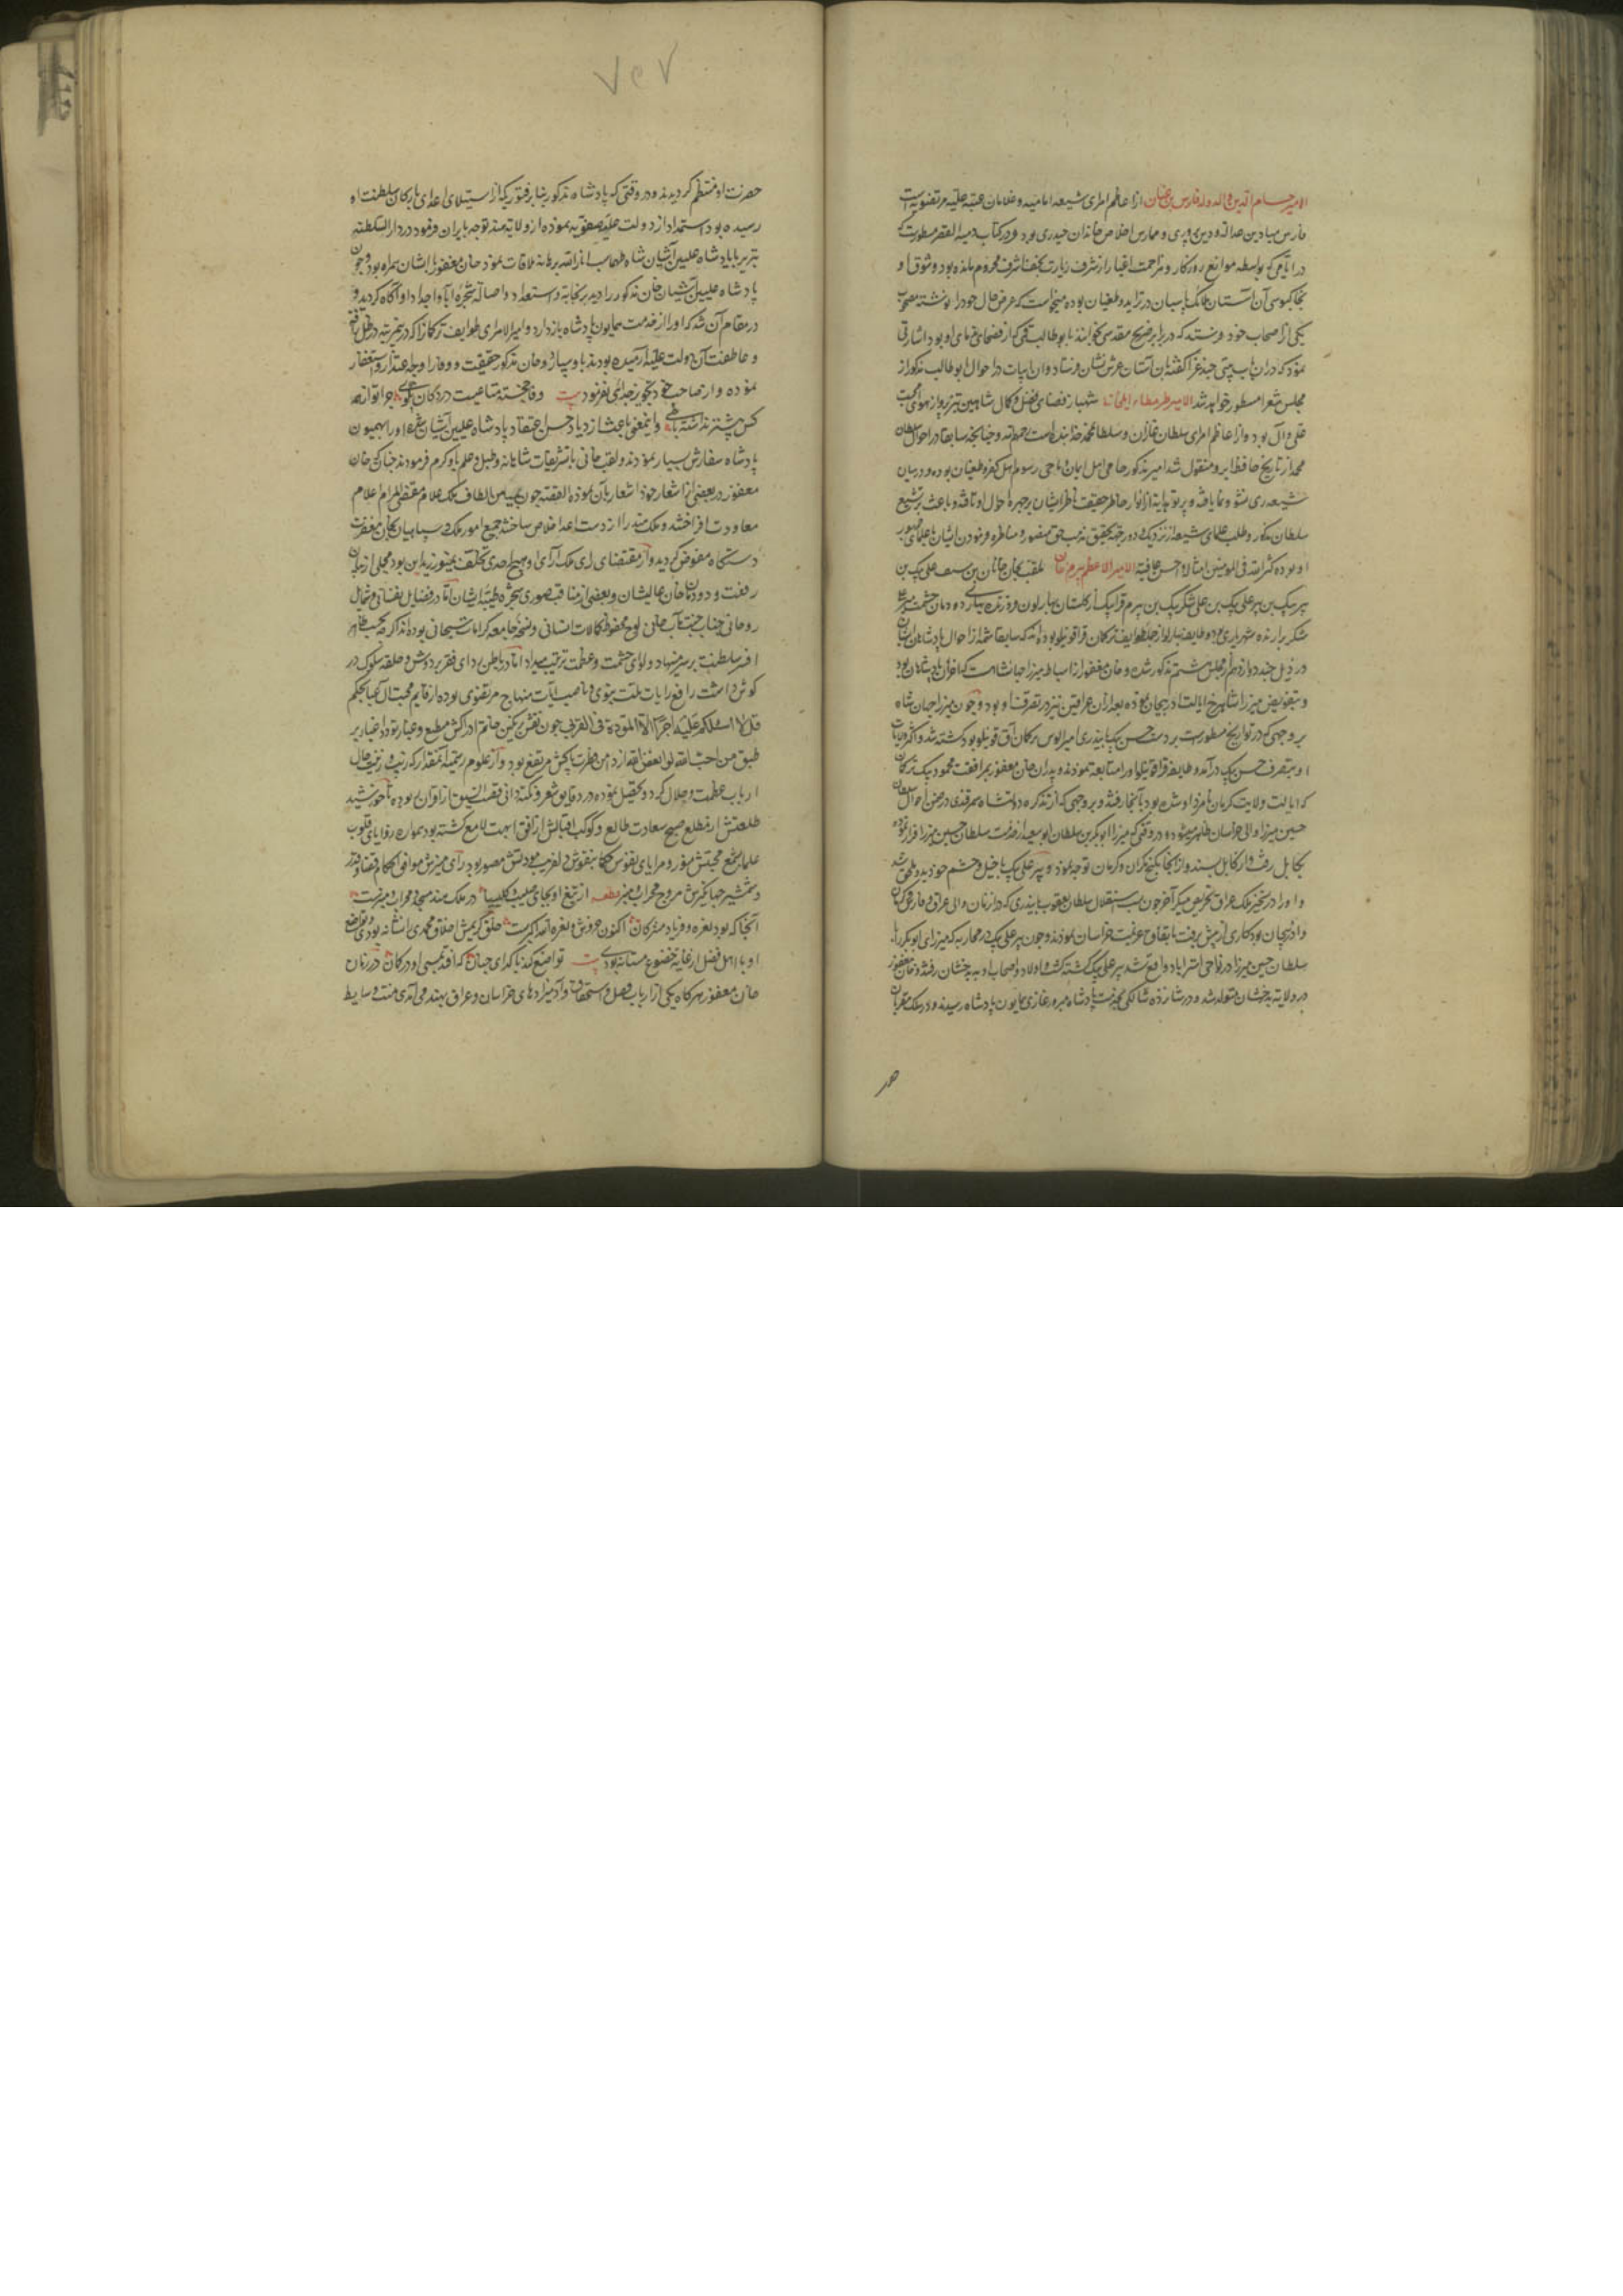 الامیر حسام الدین والدوله فارس بن عنان از اعاظم امرای شیعه امامیه و غلامان عتبه علیه مرتضویه است
فارس میادین عدالت و دین پروری و ممارس اخلاص خاندان حیدری بود و در کتاب دمیة القصر مسطورست که
در ایامی که بواسطه موانع روزگار و مزاحمت اغیار از شرف زیارت نجف اشرف محروم مانده بود و شوق او
بخاکبوسی آن آستان ملائک پاسبان در تزاید و طغیان بوده میخواست که عرض حال خود را نوشته مصحوب
یکی از اصحاب خود فرستد که در برابر ضریح مقدس بخوانند با بوطالب قمی که از فصحای زمان او بود اشارتی
نمود که در آن باب بیتی چند غرا گفته بآن آستان عرش نشان فرستاد و آن ابیات در احوال ابوطالب مذکور از
مجلس شعرا مسطور خواهد شد الامیر طرمطاز ایلخانی شهباز فضای فضل و کمال شاهین تیز پرواز هوای محبت
علی و آل بود و از اعاظم امرای سلطان غازان و سلطان محمد خدابنده است و چنانچه سابقا در احوال سلطان
محمد از تاریخ حافظ ابرو منقول شد امیر مذکور حامی اهل ایمان و ماحی رسوم اهل کفر و طغیان بوده و در میان
شیعه ری نشو و نما یافته و پرتو هدایة از انوار خاطر حقیقت ناظر ایشان بر چهره احوال او تافته و باعث بر تشیع
سلطان مذکور و طلب علمای شیعه از نزدیک و دور جهة تحقیق مذهب حق منصور و مناظره فرمودن ایشان با علمای جمهور
او بوده کثر الله فی المؤمنین امثاله و احسن عاقبته الامیر الاعظم بیرم خان ملقب بخان خانان بن سیف علی بیک بن
پیر بیک بن پیر علی بیک بن علی شکر بیک بن بیرم قرا بیک از گلستان بهارلو
شکر برازنده شهریاری بود و طایفه بهارلو از جمله طوایف ترکمان قراقوینلو بوده اند که سابقا شمه از احوال پادشاهان ایشان
در ذیل جند دوازدهم از مجلس هشتم مذکور شد و خان مغفور از اسباط میرزا جهانشاه است که از خواقین پادشاهان بود
و بتفویض میرزا شاهرخ ایالت آذربیجان نموده بعد از آن عراقین نیز در تصرف او بود و چون میرزا جهان شاه
بر وجهی که در تواریخ مسطورست بر دست حسن بیک بایندری امیر الوس ترکمان آق قوینلو بود کشته شد و اکثر ولایات
او بتصرف حسن بیک درآمد و طایفه قراقوینلو او را متابعت نمودند و پدران خان مغفور بمرافقت محمود بیک ترکمان
که ایالت ولایت کرمان نامزد او شده بود بآنجا رفتند و بر وجهی که از تذکره دولتشاه سمرقندی در ضمن احوال سلطان
حسین میرزا والی خراسان ظاهر میشود در وقتی که میرزا ابوبکر بن سلطان ابوسعید از خدمت سلطان حسین میرزا فرار نموده
بکابل رفت و از کابل بسند و از آنجا بکیج مکران و کرمان توجه نمود و پیر علی بیک با خیل و حشم خود بدو ملحق شد
و او را در تسخیر ملک عراق تحریص میکرد آخر چون بسبب استقلال سلطان یعقوب بایندری که در آن زمان والی عراق و فارس و کرمان
و آذربیجان بود کاری از پیش نرفت باتفاق عزیمت خراسان نمودند و چون پیر علی بیک در محاربه که میرزای ابوبکر را با
سلطان حسین میرزا در نواحی استراباد واقع شد پیر علی بیک کشته گشته اولاد و اصحاب او به بدخشان رفتند و خان مغفور
در ولایت بدخشان متولد شد و در شانزده سالگی بخدمت پادشاه مبرور غازی همایون پادشاه رسیده و در سلک مقربان
حضر
۷۵۷
حضرت او منتظم گردیدند و در وقتی که پادشاه مذکور بنابر فتوری که از استیلای اعدای بارکان سلطنت او
رسیده بود استمداد از دولت علیه صفویه نموده از ولایت هند توجه بایران فرمود در دار السلطنه
تبریز با پادشاه علیین آشیان شاه طهماسب انار الله برهانه ملاقات نمود خان مغفور با ایشان همراه بود و چون
پادشاه علیین آشیان خان مذکور را دید بر نجابت و استعداد و اصالة شجره آبا و اجداد او آگاه گردید و
در مقام آن شد که او را از خدمت همایون پادشاه باز دارد و امیر الامرای طوایف ترکمان را که در ظل رافت
و عاطفت آن دولت علیه آرمیده بودند باو سپارد و خان مذکور حقیقت و وفا را وجه اعتذار و استغفار
نموده و از صاحب خود تجویز جدائی نفرمود بیت وفا خجسته متاعیست در دکان
کس پیشتر نداشته باشی و این معنی باعث ازدیاد حسن اعتقاد پادشاه علیین آشیان شده او را بهمایون
پادشاه سفارش بسیار نمودند و لقب خانی با تشریفات شاهانه و طبل و علم باو کرم فرمودند چنانکه خان
مغفور در بعضی از اشعار خود اشعار بآن نموده القصه چون بمیامن الطاف ملک علام مقضی المرام اعلام
معاودت افراخته و ملک هند را از دست اعدا خلاص ساخته جمیع امور ملک و سپاهیان بخان مغفرت
دستگاه مفوض گردید و از مقتضای رای ملک آرای او هیچ احدی تخلف نمینمود این بود مجملی از بیان
رفعت و دودمان خان عالیشان و بعضی از مناقب صوری شجره طیبه ایشان اما در فضایل نفسانی و شمایل
روحانی جناب جنت مآب خانی لوح محفوظ کمالات انسانی و نسخه جامعه کرامات سبحانی بوده اند اگر چه بحسب ظاهر
افسر سلطنت بر سر مینهاد و لوای حشمت و عظمت ترتیب میداد اما در باطن ردای فقر بر دوش و حلقه سلوک در
گوش داشت رافع رایات ملت نبوی و ناصب آیات منهاج مرتضوی بوده
قل لا اسئلکم علیه اجرا الا المودة فی القربی چون نقش بر نگین خاتم ادراکش منطبع و غبار تردد اخبار بر
طبق من احب الله لو ابغض الله از دامن فطرت پاکش مرتفع بود و از علوم رسمیه آنقدر که زیب و زینت حال
ارباب عظمت و جلال گردد تحصیل نموده در دقایق شعر و نکته دانی قصب السبق از اقران ربوده تا خورشید
طلعتش از مطلع صبح سعادت طالع و کوکب اقبالش از افق ابهت لامع گشته بود همواره زوایای قلوب
علما بشمع محبتش منور و مرایای نفوس حکما بنقوش دلفریب مودتش مصور بود رای منیرش موافق احکام قضا و قدر
و شمشیر جهانگیرش مروج محراب و منبر قطعه از تیغ او بجای صلیب و کلیسیا در ملک هند مسجد و محراب و منبرست
آنجا که بود نعره و فریاد مشرکان اکنون خروش و نعره الله اکبرست خلق کریمش اخلاق محمدی را نشانه بود و تواضع
او با اهل فضل از غایت خضوع مستانه بودی بیت
خان مغفور هر گاه یکی از ارباب فضل و استحقاق و آدمیزادهای خراسان و عراق بهند می آمدی منت وسایط